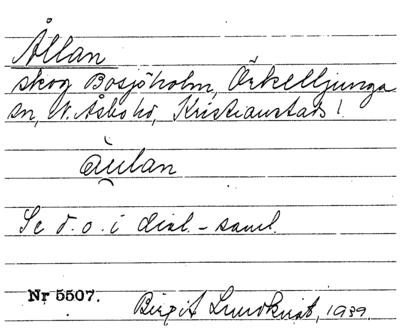 Ållan
skog Bosjöholm, Örkelljunga
sn, N. Åsbo hd, Kristianstads l.
Se d. o. i dial.-saml.
Nr 5507.
Birgit Lundkvist, 1939.